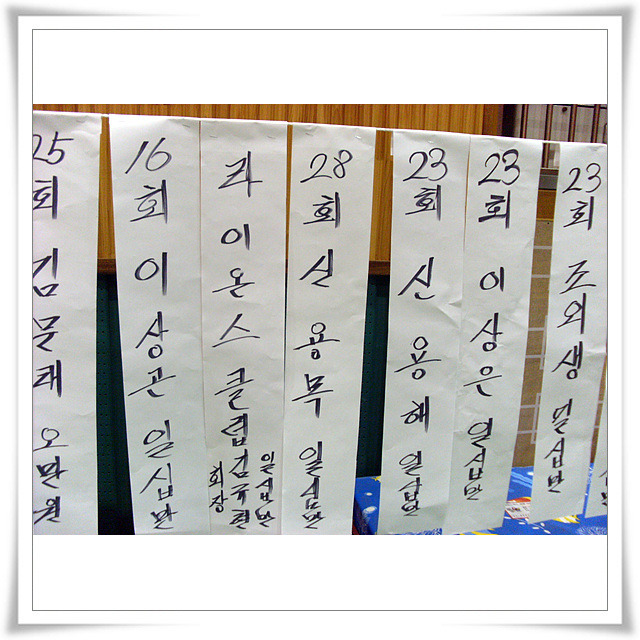 25회 김문태 오만원
16회 이상곤 일십만
라이온스클럽 회장 김규현 일십만
28회 신용묵 일십만
23회 신용해 일십만
23회 이상은 일십만
23회 조외생 일십만